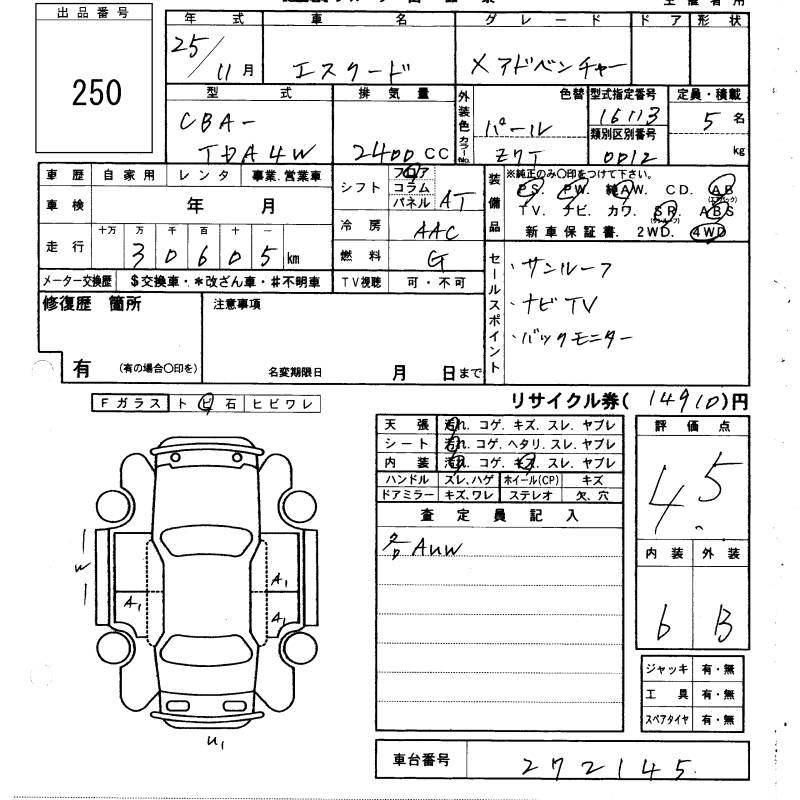 出品番号
250
年式 車名 グレード ドア 形状
25/11月 エスクード Xアドベンチャー
型式 排気量 外装色 色替 型式指定番号 定員・積載
CBA-TDA4W 2400CC パール 16113 5名
カラーNo. Z7T 類別区別番号 0012 kg
車歴 自家用 レンタ 事業.営業車
車検 年 月
走行 十万 万 千 百 十 一
30605km
メーター交換歴 $交換車・*改ざん車・#不明車
シフト フロア コラム パネル AT
冷房 AAC
燃料 G
TV視聴 可・不可
装備品 ※純正のみ〇印をつけて下さい。
PS. PW. 純AW. CD. AB(エアバッグ)
TV. ナビ. カワ. SR.(サンルーフ) ABS
新車保証書. 2WD. 4WD
セールスポイント
・サンルーフ
・ナビTV
・バックモニター
修復歴 箇所
有 (有の場合〇印を)
注意事項
名変期限日 月 日まで
Fガラス トビ石 ヒビワレ
リサイクル券(14910)円
天張 汚れ. コゲ. キズ. スレ. ヤブレ
シート 汚れ. コゲ. ヘタリ. スレ. ヤブレ
内装 汚れ. コゲ. キズ. スレ. ヤブレ
ハンドル スレ、ハゲ ホイール(CP) キズ
ドアミラー キズ、ワレ ステレオ 欠、穴
査定員記入
各AUW
評価点
4.5
内装 外装
6 B
W
A1
A1
A1
U1
ジャッキ 有・無
工具 有・無
スペアタイヤ 有・無
車台番号 272145